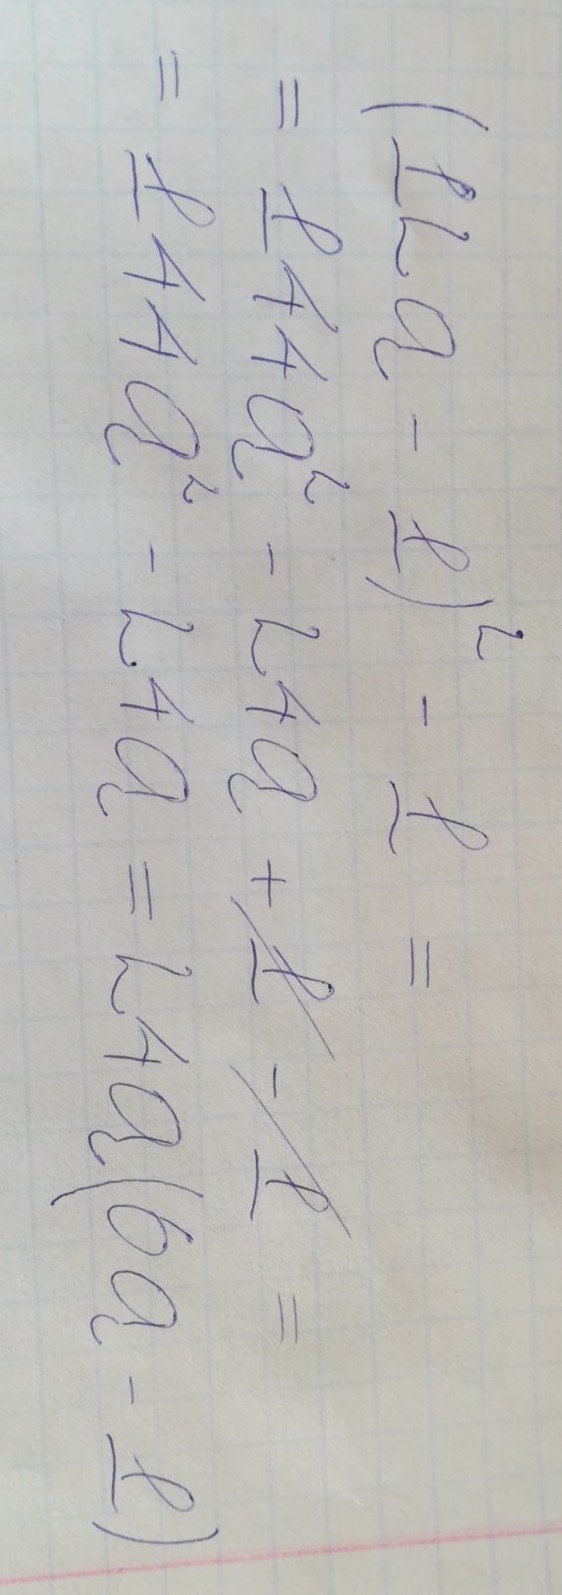 (12a - 1)² - 1 =
= 144a² - 24a + 1 - 1 =
= 144a² - 24a = 24a(6a - 1)